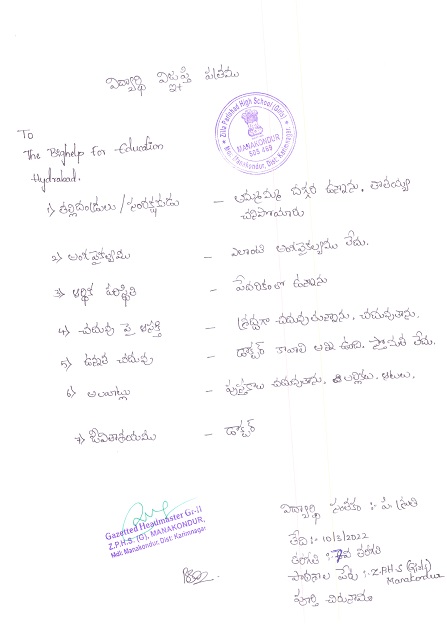 విద్యార్థి విజ్ఞప్తి పత్రము
Zilla Parishad High School (Girls)
MANAKONDUR
505 469
Mdl: Manakondur, Dist: Karimnagar
To
The Bighelp for Education
Hydrabad.
1) తల్లిదండ్రులు / సంరక్షకుడు – అమ్మమ్మ దగ్గర ఉన్నాను. తాతయ్య
చనిపోయారు
2) అంగవైకల్యము – ఎలాంటి అంగవైకల్యము లేదు.
3) ఆర్థిక పరిస్థితి – పేదరికంలో ఉన్నాను
4) చదువు పై ఆసక్తి – శ్రద్ధగా చదువుతున్నాను. చదువుతాను.
5) ఉన్నత చదువు – డాక్టర్ కావాలని ఉంది. స్తోమత లేదు.
6) అలవాట్లు – పుస్తకాలు చదువుతాను, అల్లికలు, ఆటలు.
7) జీవితాశయము – డాక్టర్
Gazetted Headmaster Gr-II
Z.P.H.S. (G), MANAKONDUR,
Mdl: Manakondur, Dist: Karimnagar
విద్యార్థి సంతకం :- ప. శ్రుతి
తేది :- 10/3/2022
తరగతి :- 7వ తరగతి
పాఠశాల పేరు :- Z.P.H.S (Girls)
Manakondur
పూర్తి చిరునామా